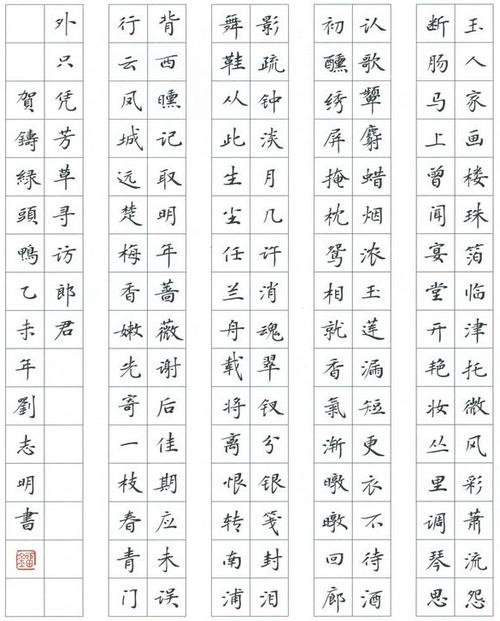 玉人家画楼珠箔临津托微风彩萧流怨
断肠马上曾闻宴堂开艳妆丛里调琴思
认歌颦麝蜡烟浓玉莲漏短更衣不待酒
初醺绣屏掩枕鸳相就香氣渐暾暾回廊
影疏钟淡月几许消魂翠钗分银笺封泪
舞鞋从此生尘任兰舟载将离恨转南浦
背西曛记取明年蔷薇谢后佳期应未误
行云凤城远楚梅香嫩先寄一枝春青门
外只凭芳草寻访郎君
賀鑄綠頭鴨乙未年劉志明書